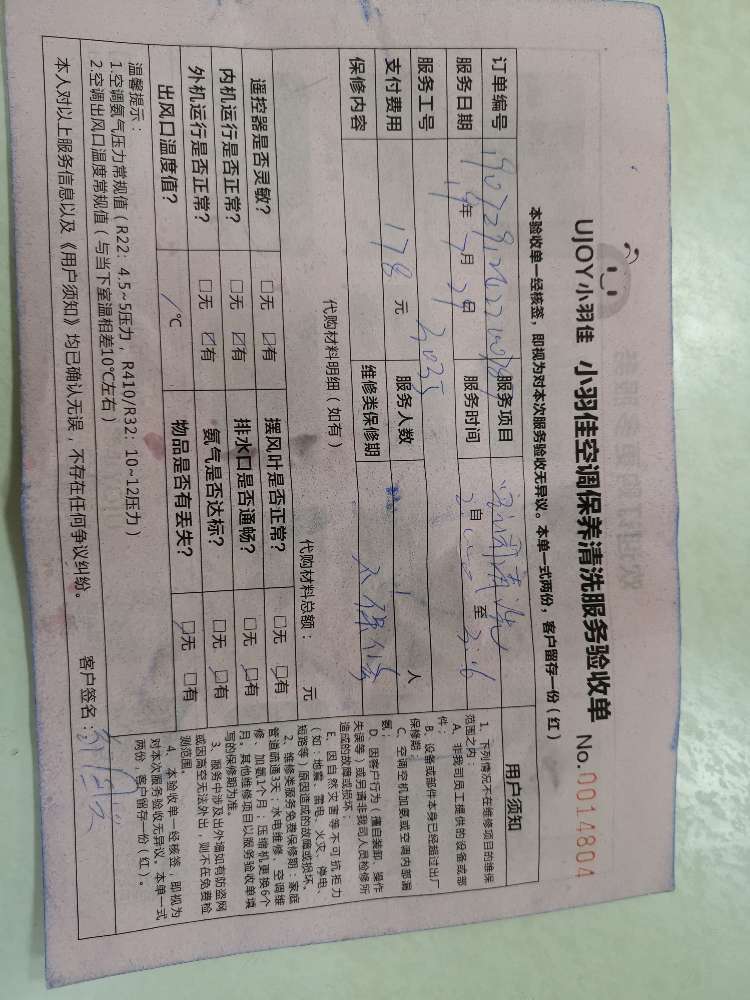 UJOY小羽佳 小羽佳空调保养清洗服务验收单 No.0014804
本验收单一经核签，即视为对本次服务验收无异议。本单一式两份，客户留存一份（红）
订单编号 服务项目
服务日期 19年7月29日 服务时间 自 至
服务工号 服务人数 1人
支付费用 178元 维修类保修期
保修内容 不保修
代购材料明细（如有） 代购材料总额： 元
遥控器是否灵敏？ □无 ☑有 摆风叶是否正常？ □无 □有
内机运行是否正常？ □无 ☑有 排水口是否通畅？ □无 □有
外机运行是否正常？ □无 ☑有 氨气是否达标？ □无 □有
出风口温度值？ / ℃ 物品是否有丢失？ □无 □有
温馨提示：
1.空调氨气压力常规值（R22：4.5~5压力，R410/R32：10~12压力）
2.空调出风口温度常规值（与当下室温相差10℃左右）
本人对以上服务信息以及《用户须知》均已确认无误，不存在任何争议纠纷。 客户签名：
用户须知
1、下列情况不在维修项目的维保
范围之内：
A、非我司员工提供的设备或部
件；
B、设备或部件本身已经超过出厂
保修期；
C、空调空机加氨或空调内部漏
氨；
D、因客户行为（擅自装卸、操作
失误等）或另请非我司人员检修所
造成的故障或损坏；
E、因自然灾害等不可抗拒力
（如：地震、雷电、火灾、停电、
短路等）原因造成的故障或损坏。
2、维修类服务免费保修期：家庭
管道疏通3天；水电维修、空调维
修、加氨1个月；压缩机更换6个
月。其他维修项目以服务验收单填
写的保修期为准。
3、服务中涉及出外墙如有防盗网
或因高空无法外出，则不在免费检
测范围。
4、本验收单一经核签，即视为
对本次服务验收无异议。本单一式
两份，客户留存一份（红）。